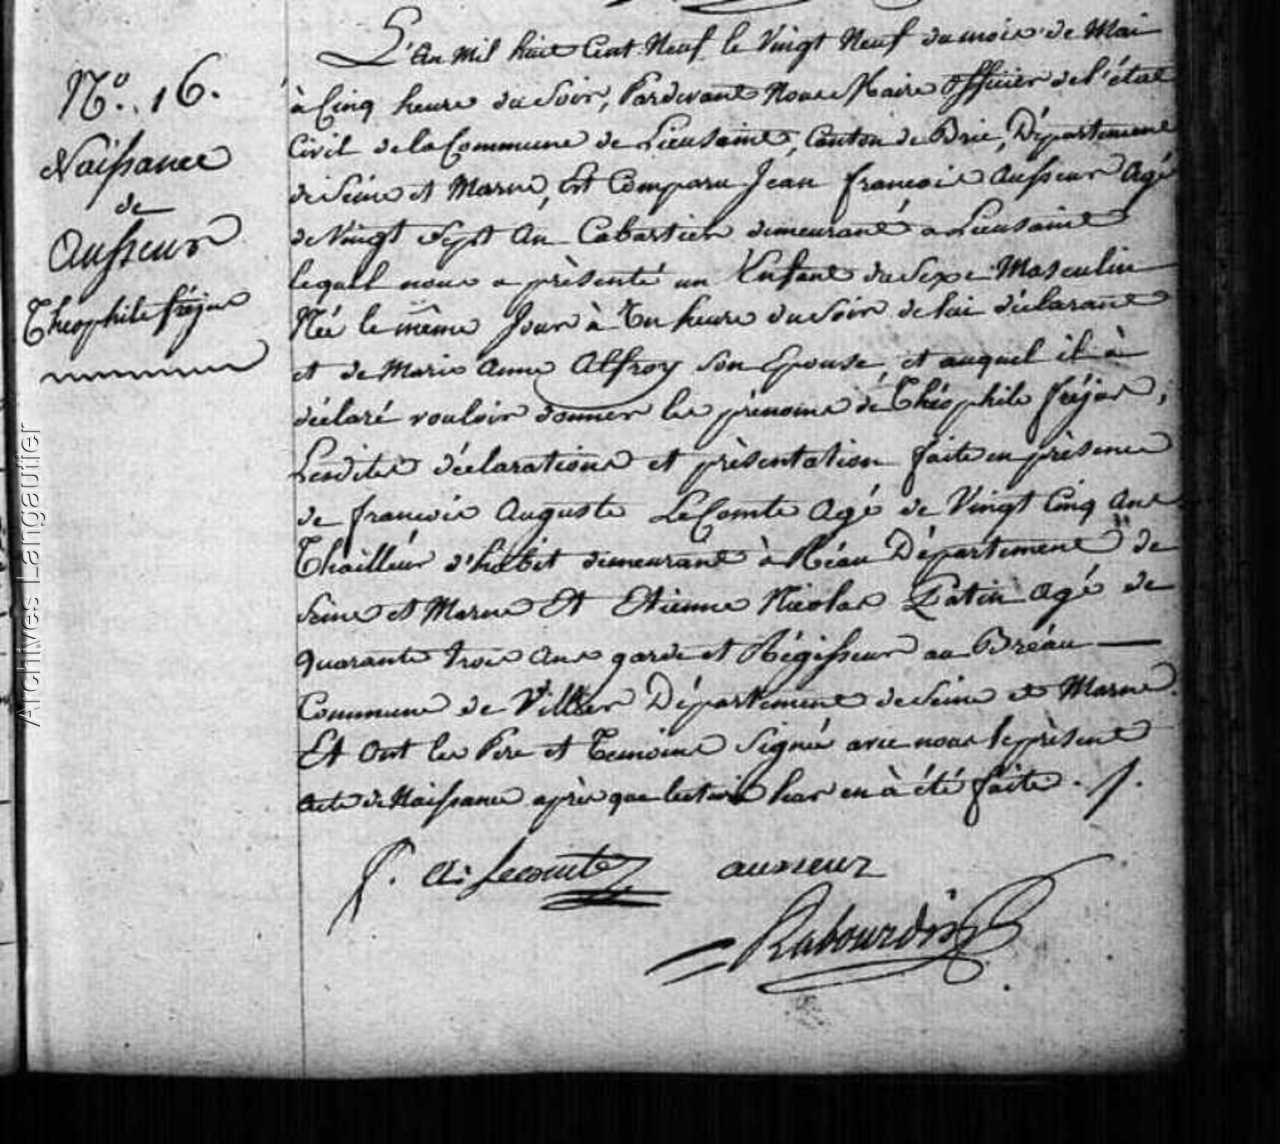 N.º 16.
Naissance
de
Ausseur
Théophile fréjus
L'An Mil huit Cent Neuf le Vingt Neuf du mois de Mai
à Cinq heure du Soir, Pardevant Nous Maire Officier de l'état
Civil de la Commune de Lieusaint, Canton de Brie, Département
de Seine et Marne, Est Comparu Jean francois Ausseur Agé
de Vingt Sept An Cabartier demeurant à Lieusaint
lequell nous a présenté un Enfant du Sexe Masculin
Née le même Jour à Un heure du Soir de lui déclarant
et de Marie Anne Alfroy Son Epouse, et auquel il à
déclaré vouloir donner les prénoms de Théophile fréjus,
Lesdites déclarations et présentation faite en présence
de francois Auguste LeComte Agé de Vingt Cinq Ans
Thailleur d'habit demeurant à Réau Département de
Seine et Marne Et Etienne Nicolas Patin agé de
Quarante trois Ans garde et Régisseur au Bréau
Commune de Villier Département de Seine et Marne.
Et Ont les Pere et Temoins Signé avec nous le présent
Acte de Naissance après que lecture leur en à été faite.
f. A: Lecomte ausseur
Rabourdin
Archives Langautier